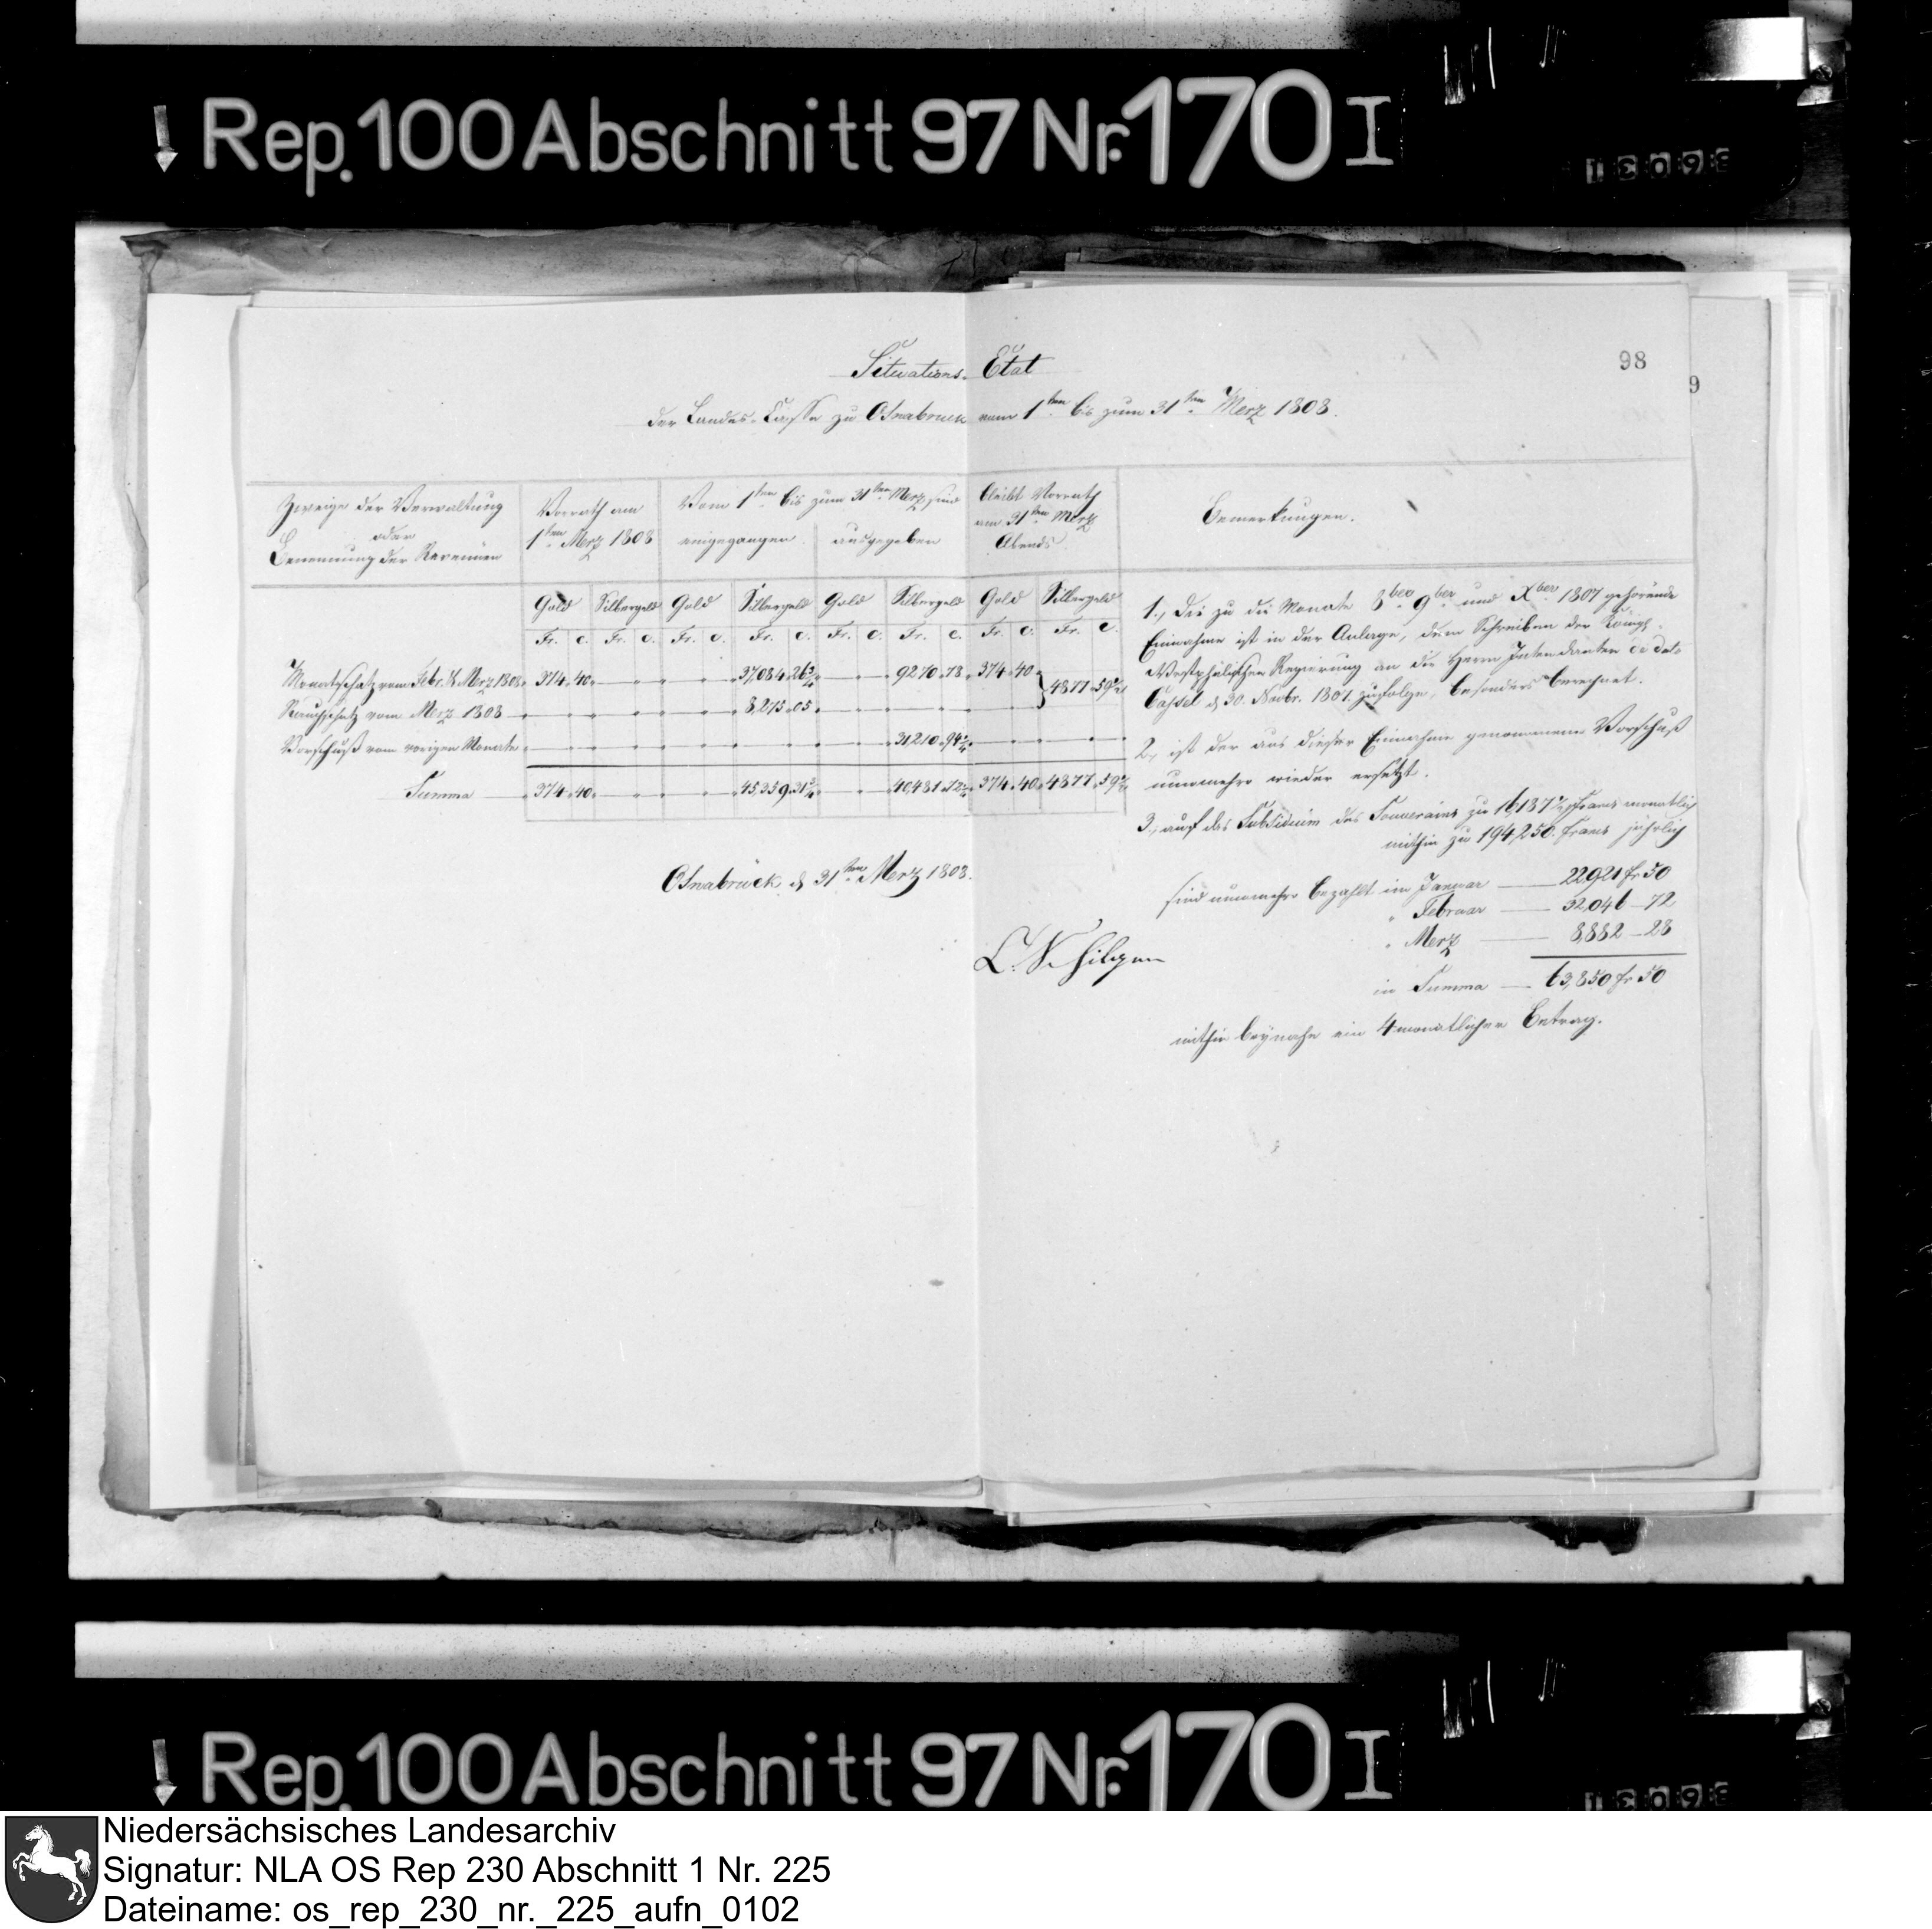 Rep. 100 Abschnitt 97 Nr. 170 I
13093
98
9
Situations- Etat
der Landes-Casse zu Osnabrück vom 1ten bis zum 31ten Merz 1808.
Zweige der Verwaltung
oder
Benennung der Revenüen
Vorrath am
1ten Merz 1808
Vom 1ten bis zum 31ten Merz sind
eingegangen.
ausgegeben
bleibt Vorrath
am 31ten Merz
Abends.
Bemerkungen.
Gold Silbergeld Gold Silbergeld Gold Silbergeld Gold Silbergeld
Fr. c. Fr. c. Fr. c. Fr. c. Fr. c. Fr. c. Fr. c. Fr. c.
Monatschatz vom Febr. & Merz 1808 374 40 37,084 26 3/4 9270 78 374 40
4877 59
Rauchschatz vom Merz 1808 8,275 05
Vorschuß vom vorigen Monate 31,210 94
Summa 374 40 45,359 31 3/4 40,481 72 374 40 4877 59
1., Die zu die Monate 8ber 9ber und Xber 1807 gehörende
Einnahme ist in der Anlage, dem Schreiben der Königl.
Westphälischen Regierung an die Herrn Intendanten de dato
Cassel d. 30. Novbr. 1807. zufolge, besonders berechnet.
2., ist der aus dieser Einnahme genommene Vorschuß
nunmehro wieder ersetzt.
3., auf das Subsidium des Souverains zu 16,187 1/2 Francs monatlich
mithin zu 194,250. Francs jährlich
sind nunmehro bezahlt im Januar — 22,921 fr 50
" Februar — 32,046 — 72
" Merz — 8,882 — 28
in Summa — 63,850 fr 50
mithin beynahe ein 4monatlicher Betrag.
Osnabrück d. 31ten Merz 1808.
C. Schilgen
Rep. 100 Abschnitt 97 Nr. 170 I
13093
Niedersächsisches Landesarchiv
Signatur: NLA OS Rep 230 Abschnitt 1 Nr. 225
Dateiname: os_rep_230_nr._225_aufn_0102